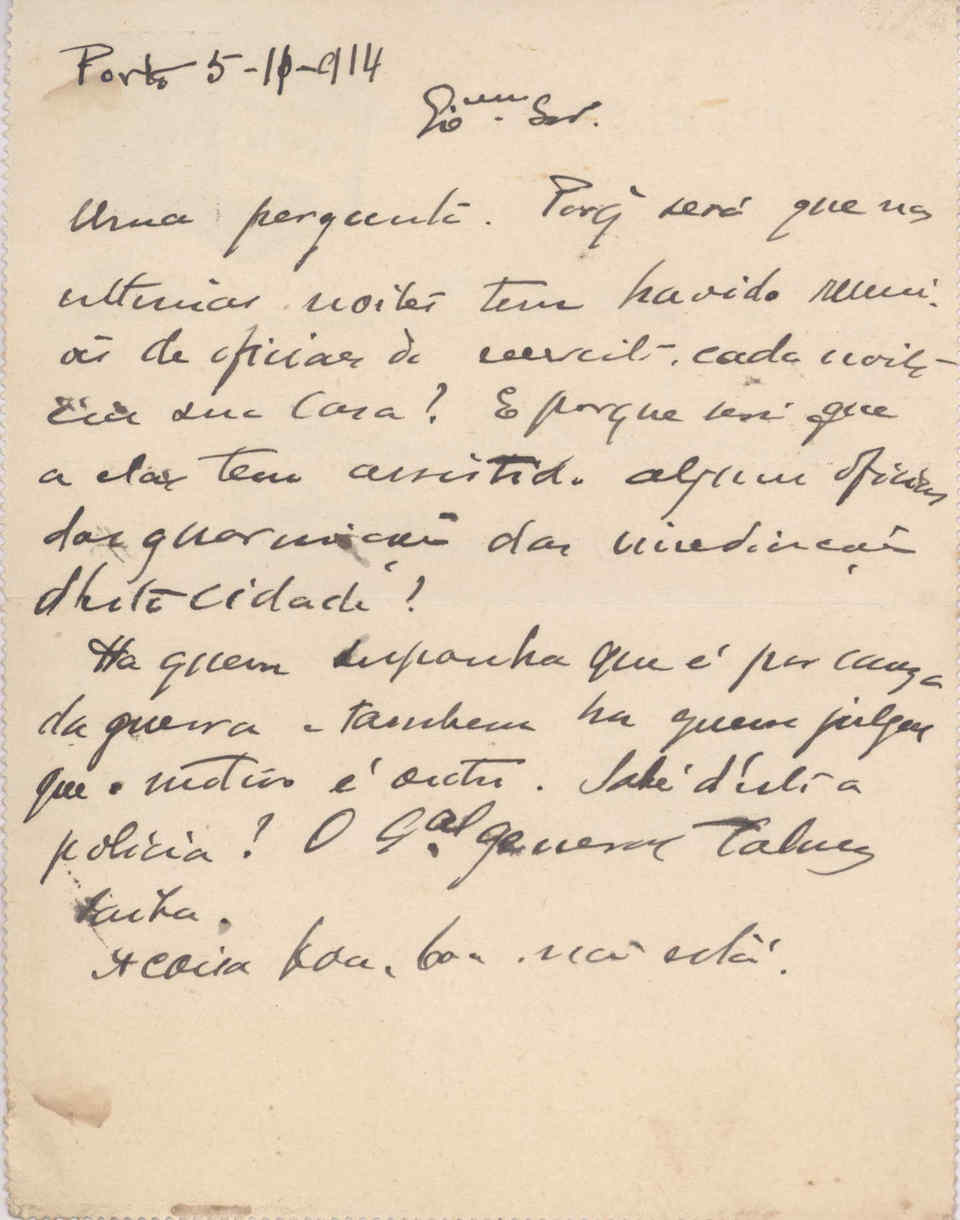 Porto 5-10-914
Ex.mo Snr.
Uma pergunta. Porq̃ será que nas
ultimas noites tem havido reuni-
ões de oficiaes do exercito, cada noite
em sua casa? E porque será que
a elas tem assistido alguns oficiaes
das guarnições das imediações
d'esta cidade?
Ha quem suponha que é por causa
da guerra e tambem ha quem julgue
que o motivo é outro. Sabe d'isto a
policia? O G.al general talvez
saiba.
A coisa boa, boa não está.